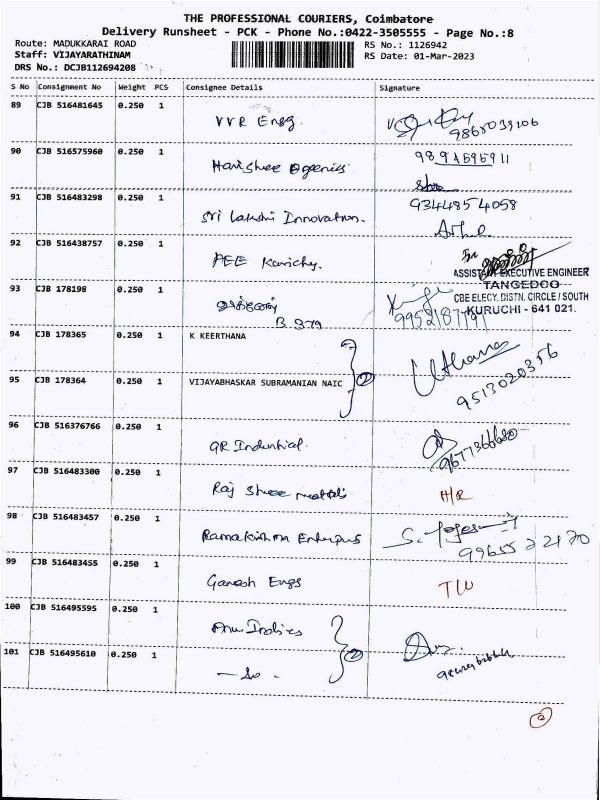 THE PROFESSIONAL COURIERS, Coimbatore
Delivery Runsheet - PCK - Phone No.:0422-3505555 - Page No.:8
Route: MADUKKARAI ROAD
RS No.: 1126942
Staff: VIJAYARATHINAM
RS Date: 01-Mar-2023
DRS No.: DCJB112694208
S No Consignment No Weight PCS Consignee Details Signature
89 CJB 516481645 0.250 1 VVR Engg.
90 CJB 516575960 0.250 1 Harishree Organics
9894595911
91 CJB 516483298 0.250 1 Sri Lakshi Innovation.
9344854058
92 CJB 516438757 0.250 1 AEE Kurichy.
ASSISTANT EXECUTIVE ENGINEER
TANGEDCO
CBE ELECY. DISTN. CIRCLE / SOUTH
KURUCHI - 641 021.
93 CJB 178198 0.250 1
B 379
94 CJB 178365 0.250 1 K KEERTHANA
95 CJB 178364 0.250 1 VIJAYABHASKAR SUBRAMANIAN NAIC 2
9513020356
96 CJB 516376766 0.250 1 GR Industrial.
97 CJB 516483300 0.250 1 Raj Shree metals
98 CJB 516483457 0.250 1 Ramakrishna Enterprises
9965522170
99 CJB 516483455 0.250 1 Ganesh Engg
100 CJB 516495595 0.250 1
101 CJB 516495610 0.250 1 - So - 2